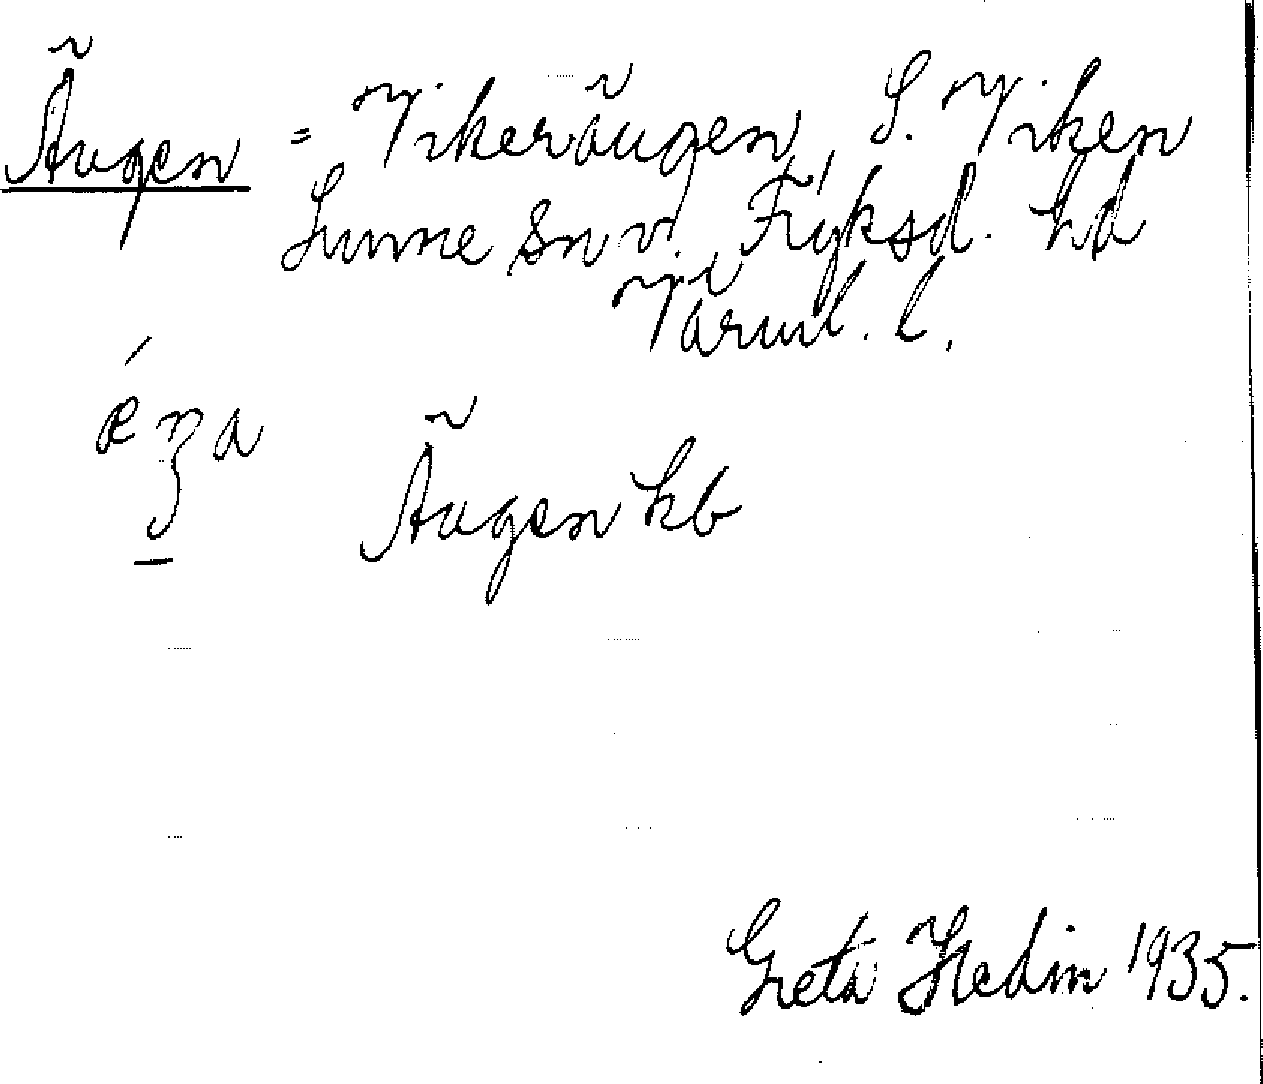 Ängen = Vikerängen, S. Viken
Sunne sn v. Fryksd. hd
Värml. l.
Ängen kb
Greta Hedin 1935.